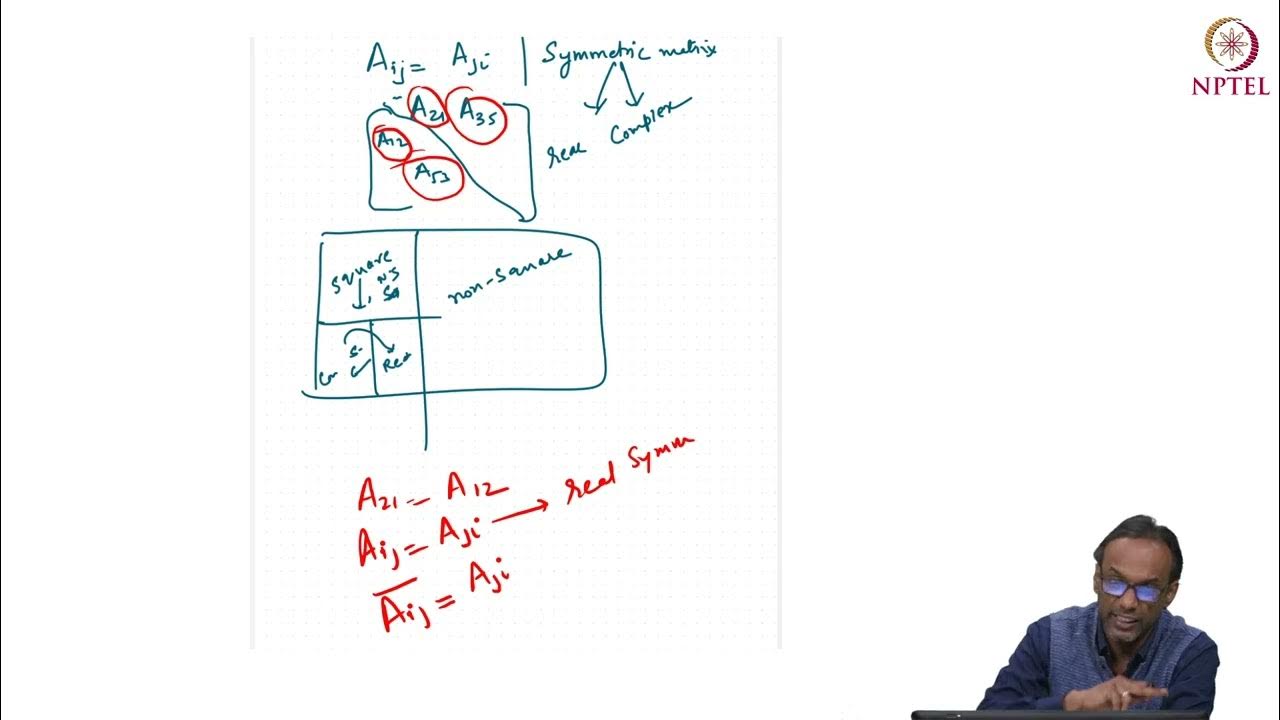 A_ij = A_ji | Symmetric matrix
real Complex
A_21 A_35
A_12
A_53
Square
NS
non-square
S
Real
A_21 = A_12
A_ij = A_ji → real Symm
A̅_ij = A_ji
NPTEL